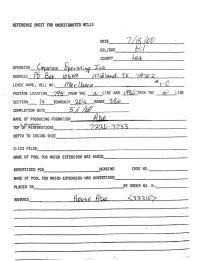 REFERENCE SHEET FOR UNDESIGNATED WELLS
DATE 7/18/00
OIL/GAS Oil
COUNTY Lea
OPERATOR Operating Inc
ADDRESS PO Box Midland TX 79702
LEASE NAME, WELL NO. Marlboro #1-C
FOOTAGE LOCATION FROM THE N LINE AND FROM THE LINE
SECTION TOWNSHIP RANGE 38e
COMPLETION DATE 5/ /00
NAME OF PRODUCING FORMATION Abo
TOP OF PERFORATIONS 7220-7733
DEPTH TO CASING SHOE
C-123 FILED
NAME OF POOL FOR WHICH EXTENSION WAS ASKED
ADVERTISED FOR HEARING CASE NO.
NAME OF POOL FOR WHICH EXTENSION WAS ADVERTISED
PLACED IN BY ORDER NO. R-
REMARKS House Abo <33210>